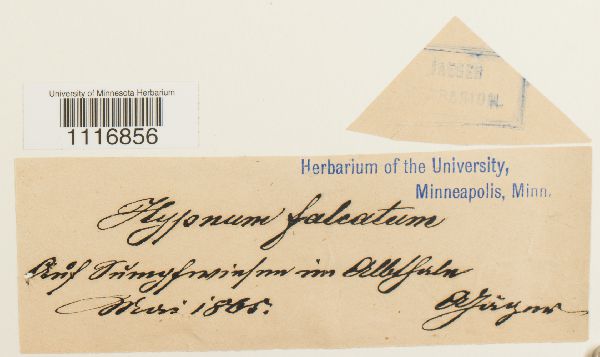 University of Minnesota Herbarium
1116856
JAEGER
Herbarium of the University,
Minneapolis, Minn.
Hypnum falcatum
Auf Sumpfwiesen im Albthale
Mai 1865. AJäger